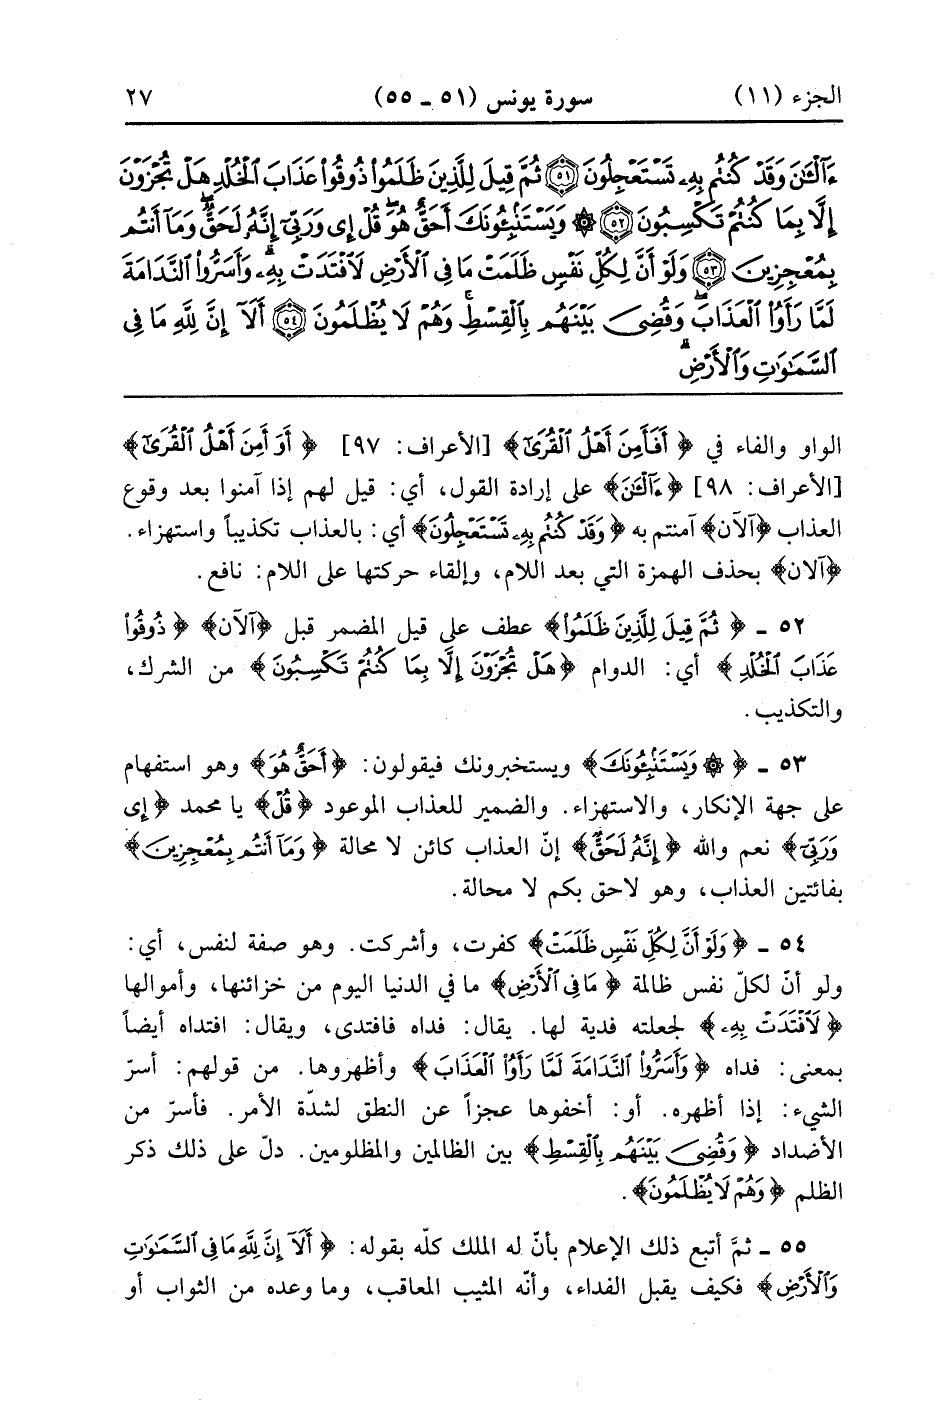 الجزء (١١) سورة يونس (٥١ ـ ٥٥) ٢٧
ءَآلْـَٰٔنَ وَقَدْ كُنتُم بِهِۦ تَسْتَعْجِلُونَ ﴿٥١﴾ ثُمَّ قِيلَ لِلَّذِينَ ظَلَمُوا۟ ذُوقُوا۟ عَذَابَ ٱلْخُلْدِ هَلْ تُجْزَوْنَ
إِلَّا بِمَا كُنتُمْ تَكْسِبُونَ ﴿٥٢﴾ ۞ وَيَسْتَنۢبِـُٔونَكَ أَحَقٌّ هُوَ ۖ قُلْ إِى وَرَبِّىٓ إِنَّهُۥ لَحَقٌّ ۖ وَمَآ أَنتُم
بِمُعْجِزِينَ ﴿٥٣﴾ وَلَوْ أَنَّ لِكُلِّ نَفْسٍ ظَلَمَتْ مَا فِى ٱلْأَرْضِ لَٱفْتَدَتْ بِهِۦ ۗ وَأَسَرُّوا۟ ٱلنَّدَامَةَ
لَمَّا رَأَوُا۟ ٱلْعَذَابَ ۖ وَقُضِىَ بَيْنَهُم بِٱلْقِسْطِ ۚ وَهُمْ لَا يُظْلَمُونَ ﴿٥٤﴾ أَلَآ إِنَّ لِلَّهِ مَا فِى
ٱلسَّمَٰوَٰتِ وَٱلْأَرْضِ ۗ
الواو والفاء في ﴿أَفَأَمِنَ أَهْلُ ٱلْقُرَىٰٓ﴾ [الأعراف: ٩٧] ﴿أَوَ أَمِنَ أَهْلُ ٱلْقُرَىٰٓ﴾
[الأعراف: ٩٨] ﴿ءَآلْـَٰٔنَ﴾ على إرادة القول، أي: قيل لهم إذا آمنوا بعد وقوع
العذاب ﴿آلآن﴾ آمنتم به ﴿وَقَدْ كُنتُم بِهِۦ تَسْتَعْجِلُونَ﴾ أي: بالعذاب تكذيباً واستهزاء.
﴿آلان﴾ بحذف الهمزة التي بعد اللام، وإلقاء حركتها على اللام: نافع.
٥٢ ـ ﴿ثُمَّ قِيلَ لِلَّذِينَ ظَلَمُوا۟﴾ عطف على قيل المضمر قبل ﴿آلآن﴾ ﴿ذُوقُوا۟
عَذَابَ ٱلْخُلْدِ﴾ أي: الدوام ﴿هَلْ تُجْزَوْنَ إِلَّا بِمَا كُنتُمْ تَكْسِبُونَ﴾ من الشرك،
والتكذيب.
٥٣ ـ ﴿۞ وَيَسْتَنۢبِـُٔونَكَ﴾ ويستخبرونك فيقولون: ﴿أَحَقٌّ هُوَ﴾ وهو استفهام
على جهة الإنكار، والاستهزاء. والضمير للعذاب الموعود ﴿قُلْ﴾ يا محمد ﴿إِى
وَرَبِّىٓ﴾ نعم والله ﴿إِنَّهُۥ لَحَقٌّ﴾ إنّ العذاب كائن لا محالة ﴿وَمَآ أَنتُم بِمُعْجِزِينَ﴾
بفائتين العذاب، وهو لاحق بكم لا محالة.
٥٤ ـ ﴿وَلَوْ أَنَّ لِكُلِّ نَفْسٍ ظَلَمَتْ﴾ كفرت، وأشركت. وهو صفة لنفس، أي:
ولو أنّ لكلّ نفس ظالمة ﴿مَا فِى ٱلْأَرْضِ﴾ ما في الدنيا اليوم من خزائنها، وأموالها
﴿لَٱفْتَدَتْ بِهِۦ﴾ لجعلته فدية لها. يقال: فداه فافتدى، ويقال: افتداه أيضاً
بمعنى: فداه ﴿وَأَسَرُّوا۟ ٱلنَّدَامَةَ لَمَّا رَأَوُا۟ ٱلْعَذَابَ﴾ وأظهروها. من قولهم: أسرّ
الشيء: إذا أظهره. أو: أخفوها عجزاً عن النطق لشدّة الأمر. فأسرّ من
الأضداد ﴿وَقُضِىَ بَيْنَهُم بِٱلْقِسْطِ﴾ بين الظالمين والمظلومين. دلّ على ذلك ذكر
الظلم ﴿وَهُمْ لَا يُظْلَمُونَ﴾.
٥٥ ـ ثمّ أتبع ذلك الإعلام بأنّ له الملك كلّه بقوله: ﴿أَلَآ إِنَّ لِلَّهِ مَا فِى ٱلسَّمَٰوَٰتِ
وَٱلْأَرْضِ﴾ فكيف يقبل الفداء، وأنّه المثيب المعاقب، وما وعده من الثواب أو